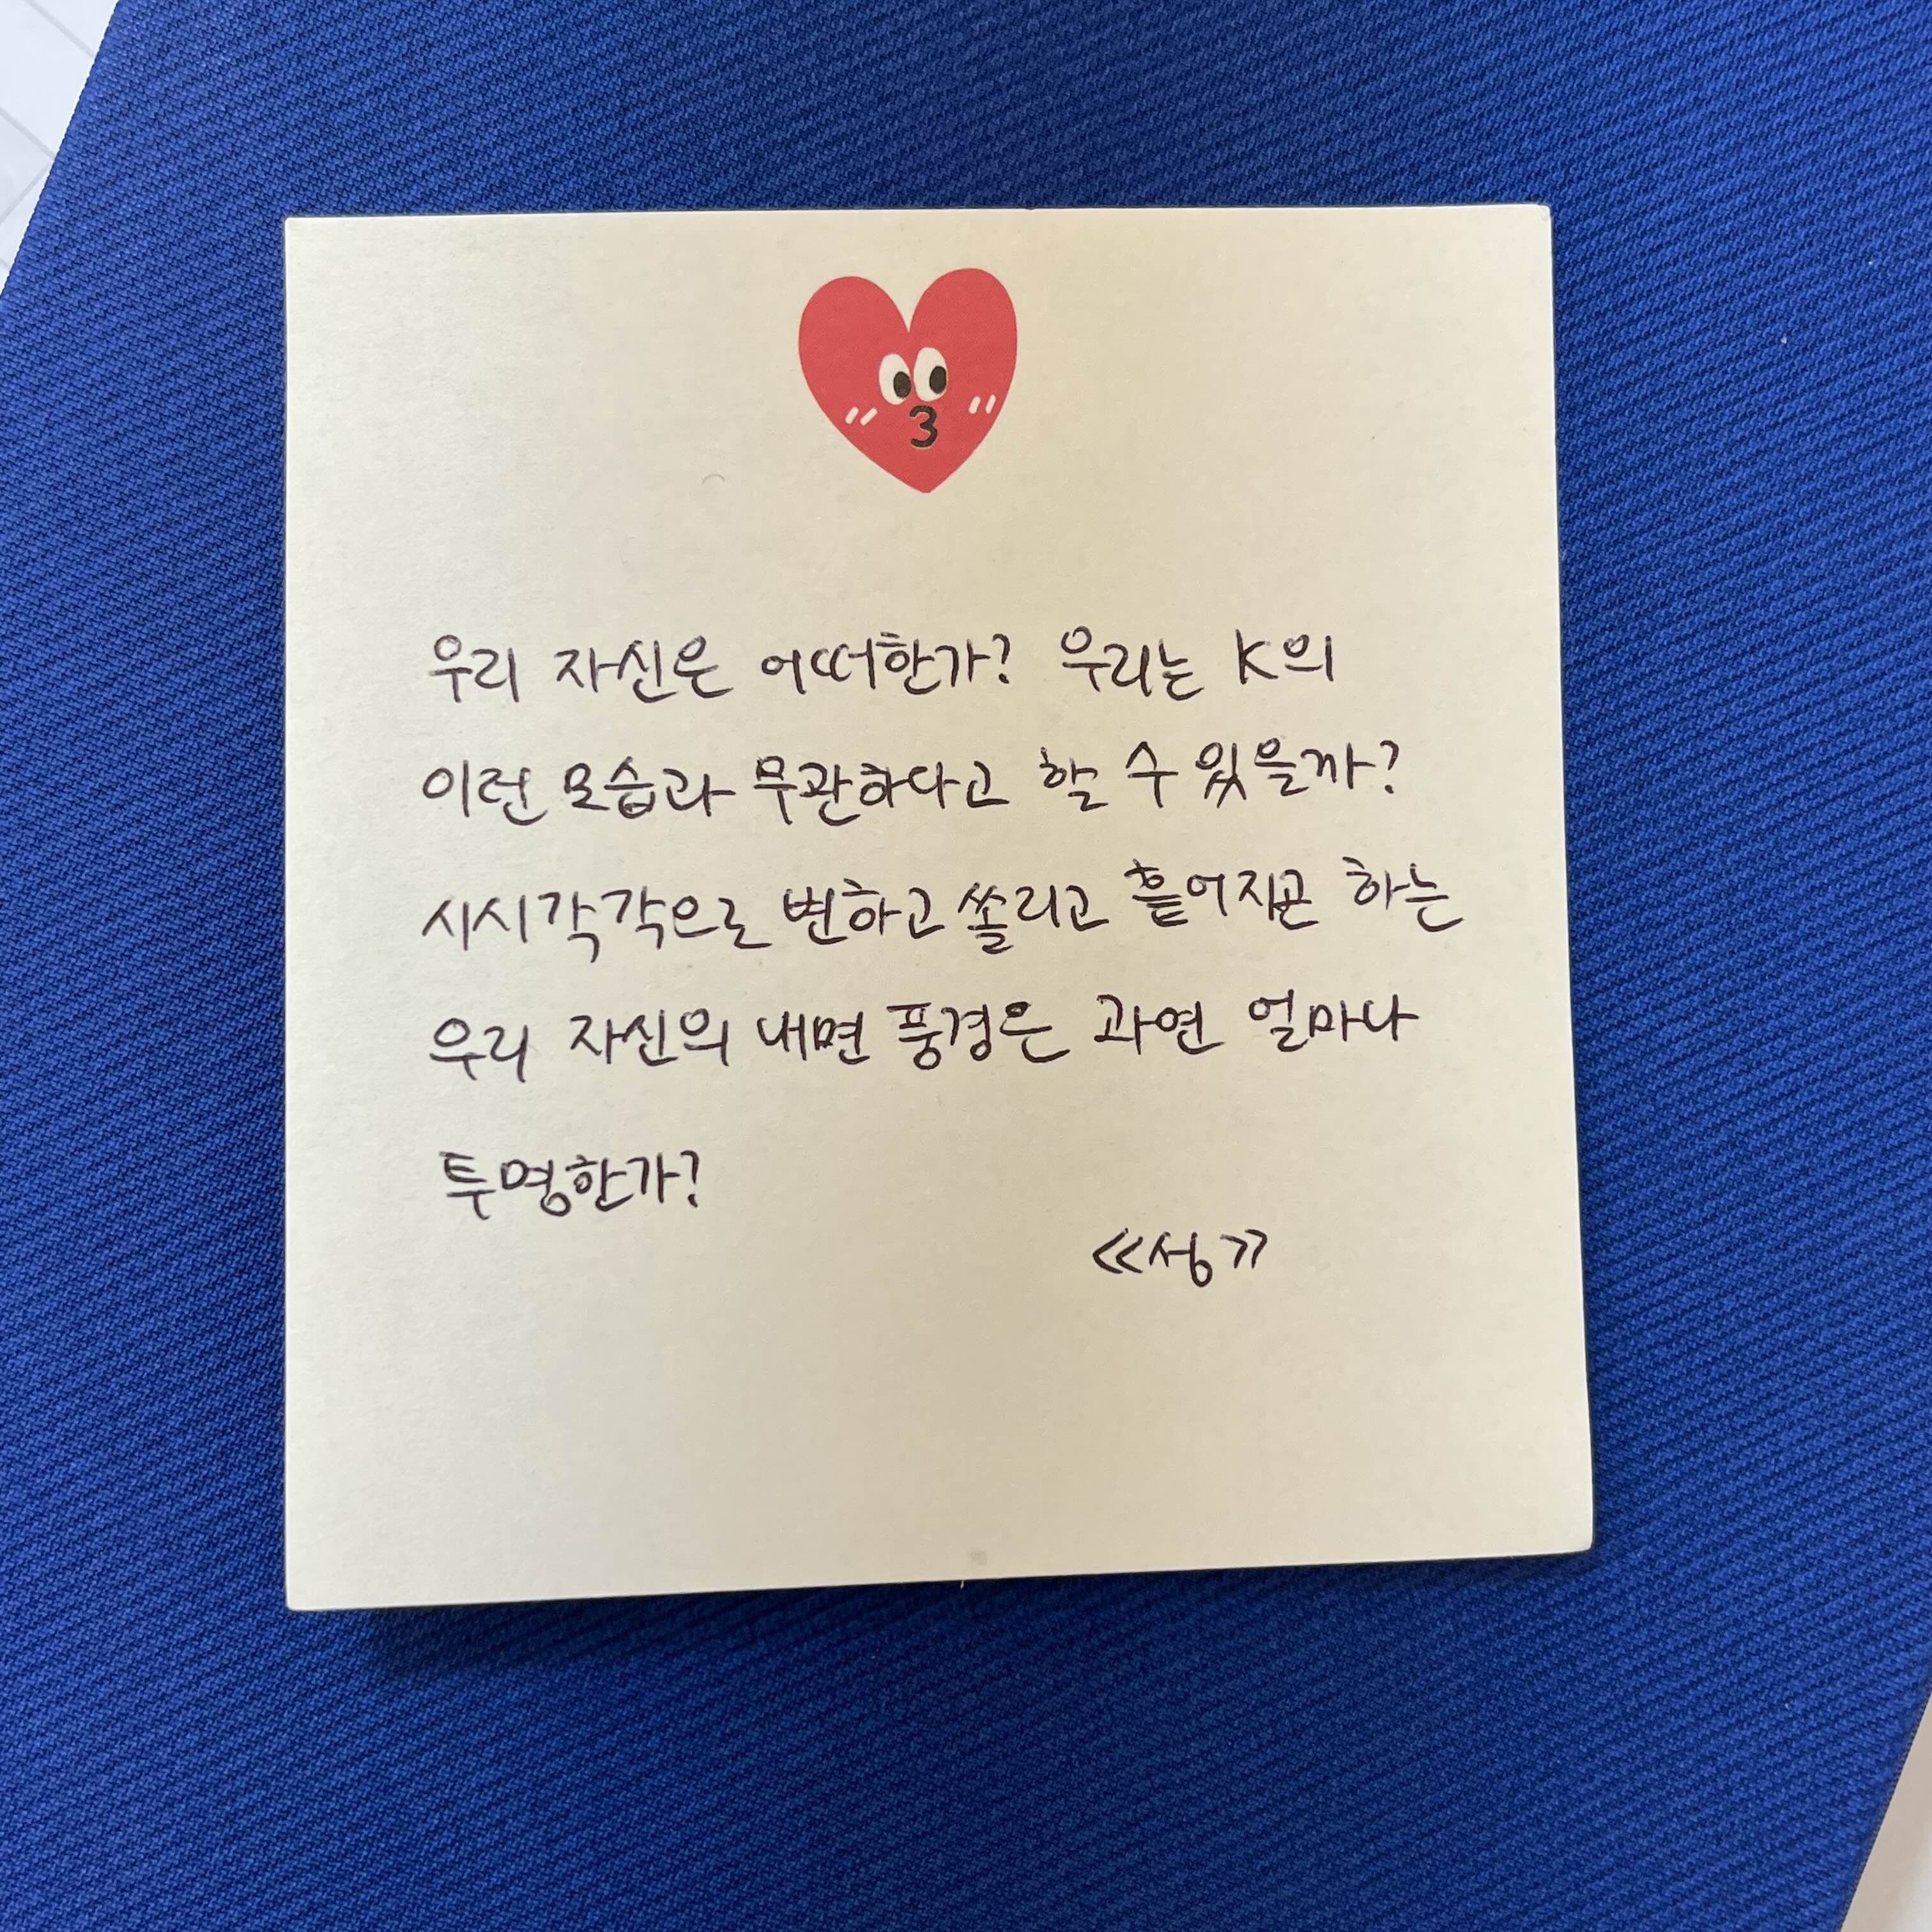 우리 자신은 어떠한가? 우리는 K의
이런 모습과 무관하다고 할 수 있을까?
시시각각으로 변하고 쏠리고 흩어지곤 하는
우리 자신의 내면 풍경은 과연 얼마나
투명한가?
《성》